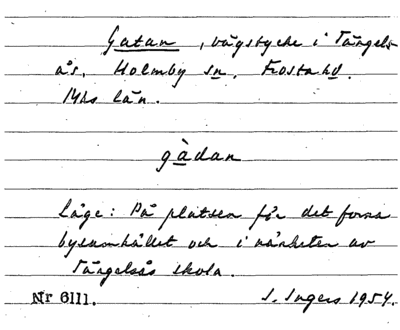 Gatan, vägstycke i Tängels-
ås, Holmby sn. Frosta hd.
Mhs län.
gàdan
Läge: På platsen för det forna
bysamhället och i närheten av
Tängelsås skola.
Nr 6111. I. Ingers 1954.